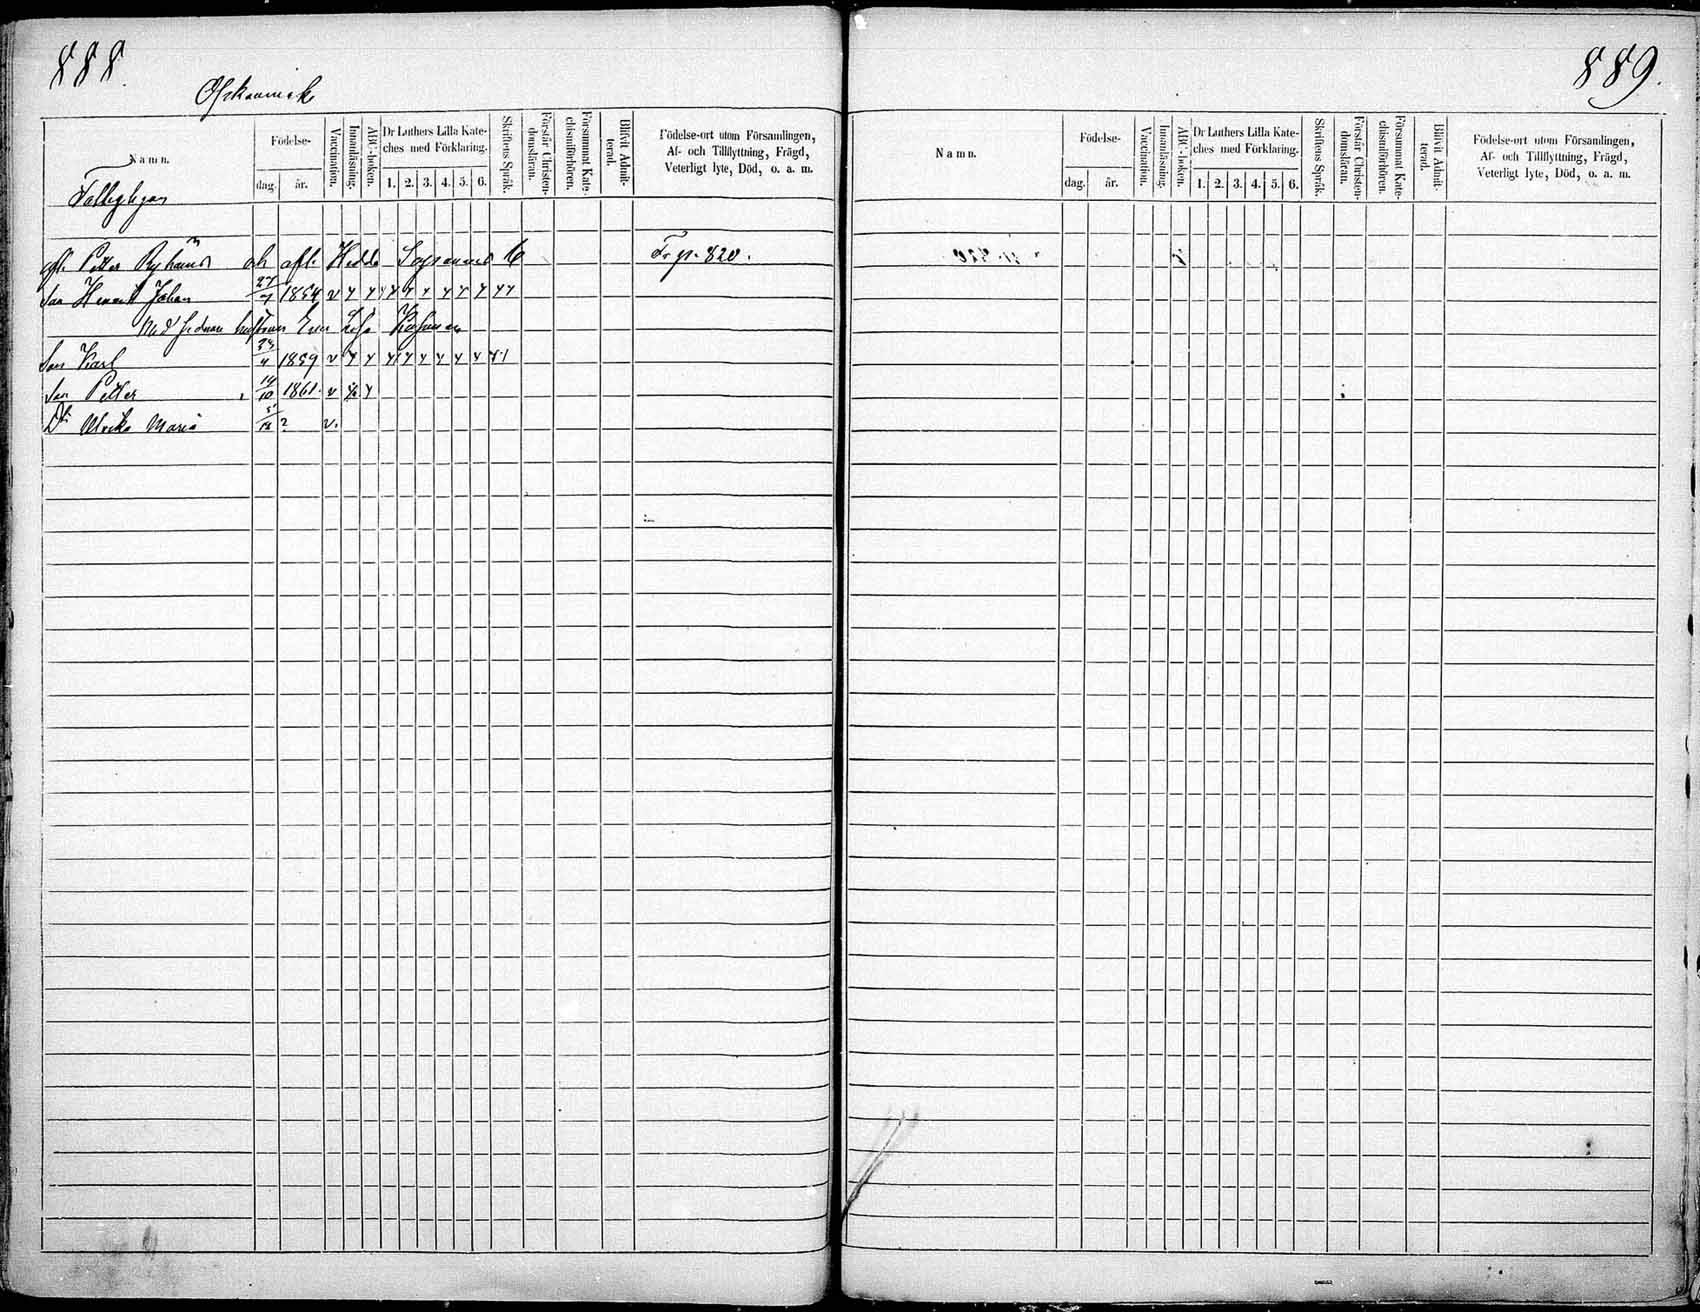 888.
N a m n.
Födelse-
dag.
år.
Vaccination.
Innanläsning.
ABC-boken.
Dr Luthers Lilla Kate-
ches med Förklaring.
1. 2. 3. 4. 5. 6.
Skriftens Språk.
Förstår Christen-
domsläran.
Försummat Kate-
chismiförhören.
Blifvit Admit-
terad.
Födelse-ort utom Församlingen,
Af- och Tillflyttning, Frägd,
Veterligt lyte, Död, o. a. m.
Petter och afl. Hedda Fr. p. 820.
Son Henrik Johan 27/7 1854 v
hustrun Eva Lisa
Son Karl 1859 v
Son Petter 14/10 1861. v
Dr Ulrika Maria ? v.
889.
N a m n.
Födelse-
dag.
år.
Vaccination.
Innanläsning.
ABC-boken.
Dr Luthers Lilla Kate-
ches med Förklaring.
1. 2. 3. 4. 5. 6.
Skriftens Språk.
Förstår Christen-
domsläran.
Försummat Kate-
chismiförhören.
Blifvit Admit-
terad.
Födelse-ort utom Församlingen,
Af- och Tillflyttning, Frägd,
Veterligt lyte, Död, o. a. m.